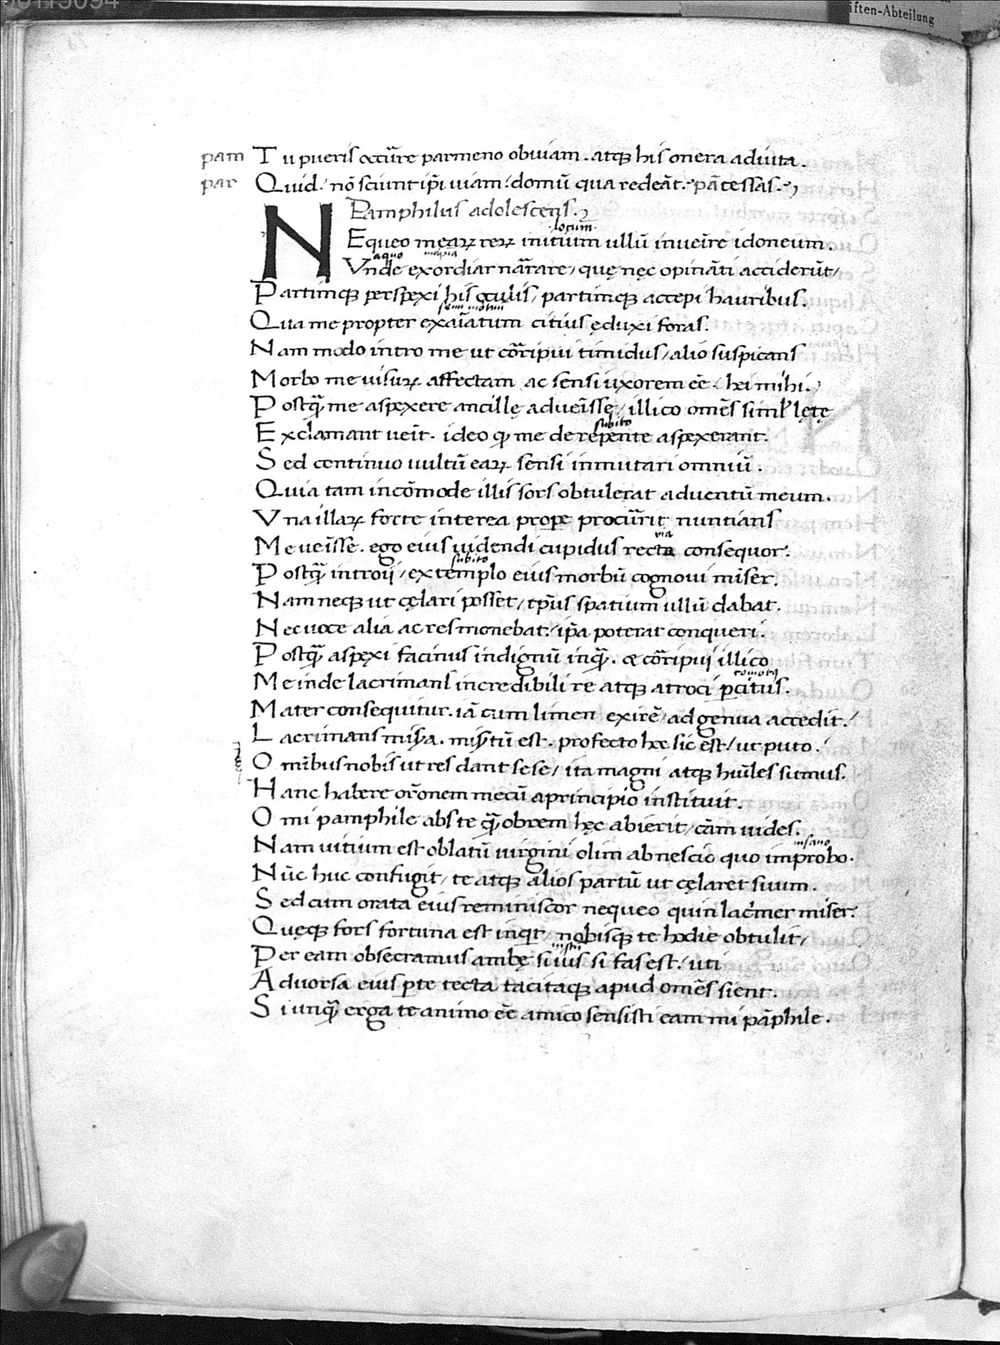 pam Tu pueris occur̄e parmeno obuiam. atqꝫ his onera adiuta.
par Quid. nō sciunt ip̄i uiam? domū qua redeāt. pā cessas.
Pamphilus adolescens.
locum
NEqueo mearꝝ rerꝝ initium ullū inuenir̄e idoneum.
a quo
Vnde exordiar nar̄are, quę nęc opināti acciderūt,
Partimqꝫ perspexi his oculis, partimqꝫ accepi hauribus.
semi motum
Qua me propter exaīatum citius ęduxi foras.
Nam modo intro me ut cor̄ipui timidus, alio suspicans
Morbo me uisurꝝ affectam ac sensi uxorem eē. hei mihi.
Postꝙ̄ me aspexere ancillę adueīsse, illico omēs siml̄ lętę
subito
Exclamant ueīt. ideo ꝙ me de repente aspexerant.
Sed continuo uultū earꝝ sensi inmutari omniū.
Quia tam incōmode illis fors obtulerat aduentū meum.
Vna illarꝝ forte interea prope procūrit nuntians
via
Me ueīsse. ego eius uidendi cupidus recta consequor.
subito
Postꝙ̄ introii, extemplo eius morbū cognoui miser.
Nam neqꝫ ut cęlari posset, tp̄us spatium ullū dabat.
Nec uoce alia ac res monebat. ip̄a poterat conqueri.
Postꝙ̄ aspexi facinus indignū inꝙ̄. & cor̄ipui illico
comotꝰ
Me inde lacrimans incredibili re atqꝫ atroci ꝑcitus.
Mater consequitur. iā cum limen exirē, ad genua accedit.
Lacrimans misa. misītū est. profecto hoc sic est, ut puto.
Omībus nobis ut res dant sese, ita magni atqꝫ hūles sumus.
Hanc habere or̄onem mecū a principio instituit.
O mi pamphile abs te ꝙ̄ obrem hęc abierit, cām uides.
insano
Nam uitium est oblatū uirgini olim ab nescio quo improbo.
Nūc huc confugit, te atqꝫ alios partū ut cęlaret suum.
Sed cum orata eius reminiscor nequeo quin lacr̄mer miser.
Quęqꝫ fors fortuna est inqt, nobisqꝫ te hodie obtulit,
Per eam obsecramus ambę si ius si fas est, uti
Aduorsa eius ꝑte tecta tacitaqꝫ apud omēs sient.
Si unꝙ̄ erga te animo eē amico sensisti eam mi pāphile.